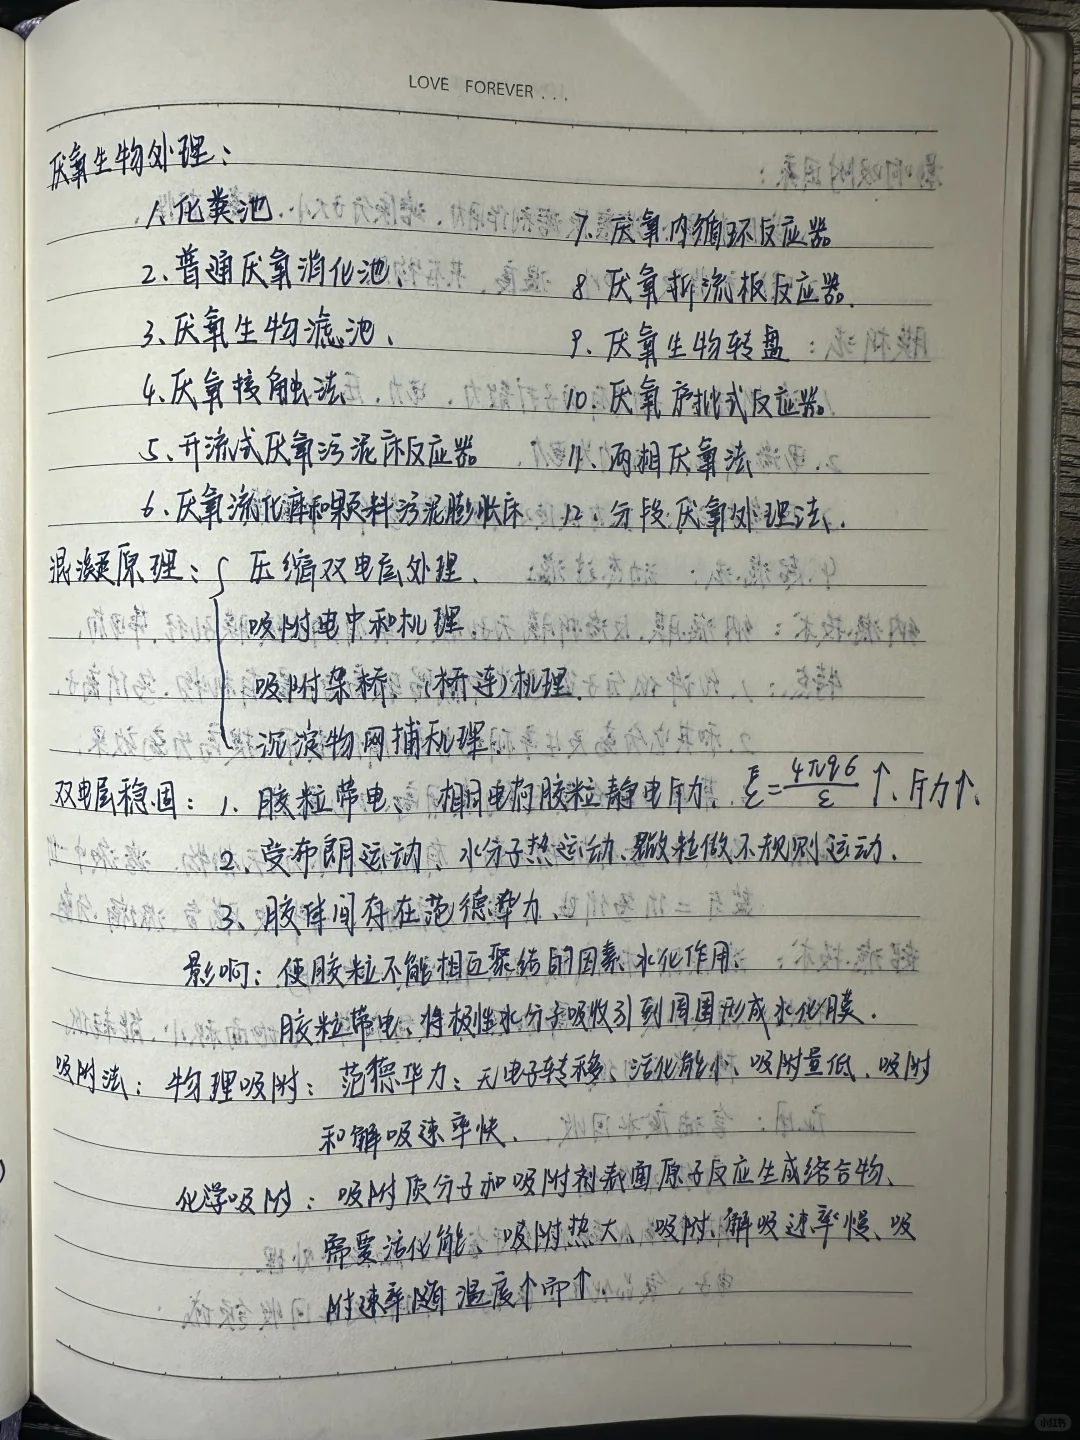 LOVE FOREVER...
厌氧生物处理：
1、化粪池
7、厌氧内循环反应器
2、普通厌氧消化池、
8、厌氧折流板反应器.
3、厌氧生物滤池、
9、厌氧生物转盘
4、厌氧接触法
10、厌氧序批式反应器
5、升流式厌氧污泥床反应器
11、两相厌氧法
6、厌氧流化床和颗粒污泥膨胀床
12、分段厌氧处理法.
混凝原理：{ 压缩双电层处理、
吸附电中和机理
吸附架桥（桥连）机理.
沉淀物网捕机理
双电层稳固：1、胶粒带电、相同电荷胶粒静电斥力、ξ=4πqδ/ε↑、斥力↑、
2、受布朗运动、水分子热运动、微粒做不规则运动.
3、胶体间存在范德华力、
影响：使胶粒不能相互聚结的因素、水化作用、
胶粒带电、将极性水分子吸收引到周围形成水化膜.
吸附法：物理吸附：范德华力：无电子转移、活化能小、吸附量低、吸附
和解吸速率快、
化学吸附：吸附质分子和吸附剂表面原子反应生成络合物、
需要活化能、吸附热大、吸附、解吸速率慢、吸
附速率随温度↑而↑
小红书